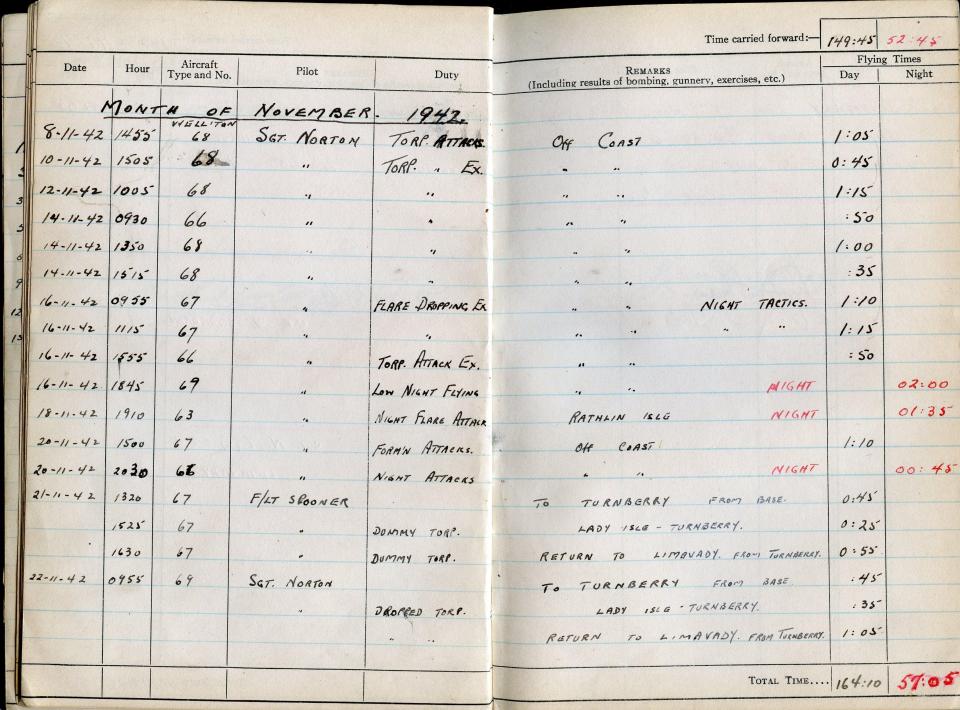 Time carried forward:— 149:45 52:45
Date Hour Aircraft Type and No. Pilot Duty REMARKS (Including results of bombing, gunnery, exercises, etc.) Flying Times Day Night
MONTH OF NOVEMBER. 1942.
WELLITON
8-11-42 1455 68 SGT. NORTON TORP. ATTACKS. OFF COAST 1:05
10-11-42 1505 68 " TORP. " EX. " " 0:45
12-11-42 1005 68 " " " " 1:15
14-11-42 0930 66 " " " " :50
14-11-42 1350 68 " " " " 1:00
14-11-42 1515 68 " " " " :35
16-11-42 0955 67 " FLARE DROPPING EX " " NIGHT TACTICS. 1:10
16-11-42 1115 67 " " " " " " 1:15
16-11-42 1555 66 " TORP. ATTACK EX. " " :50
16-11-42 1845 69 " LOW NIGHT FLYING " " NIGHT 02:00
18-11-42 1910 63 " NIGHT FLARE ATTACK RATHLIN ISLE NIGHT 01:35
20-11-42 1500 67 " FORM'N ATTACKS. OFF COAST 1:10
20-11-42 2030 " NIGHT ATTACKS " " NIGHT 00:45
21-11-42 1320 67 F/LT SPOONER TO TURNBERRY FROM BASE. 0:45
1525 67 " DUMMY TORP. LADY ISLE - TURNBERRY. 0:25
1630 67 " DUMMY TORP. RETURN TO LIMAVADY. FROM TURNBERRY. 0:55
22-11-42 0955 69 SGT. NORTON TO TURNBERRY FROM BASE. :45
" DROPPED TORP. LADY ISLE - TURNBERRY. :35
" " RETURN TO LIMAVADY. FROM TURNBERRY. 1:05
TOTAL TIME.... 164:10 57:05